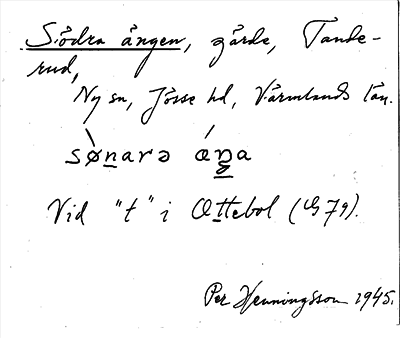 Södra ängen, gärde, Tande-
rud,
Ny sn, Jösse hd, Värmlands län.
sø̀n̲arə ǽŋa
Vid "t" i Ottebol (G79).
Per Henningsson 1945.